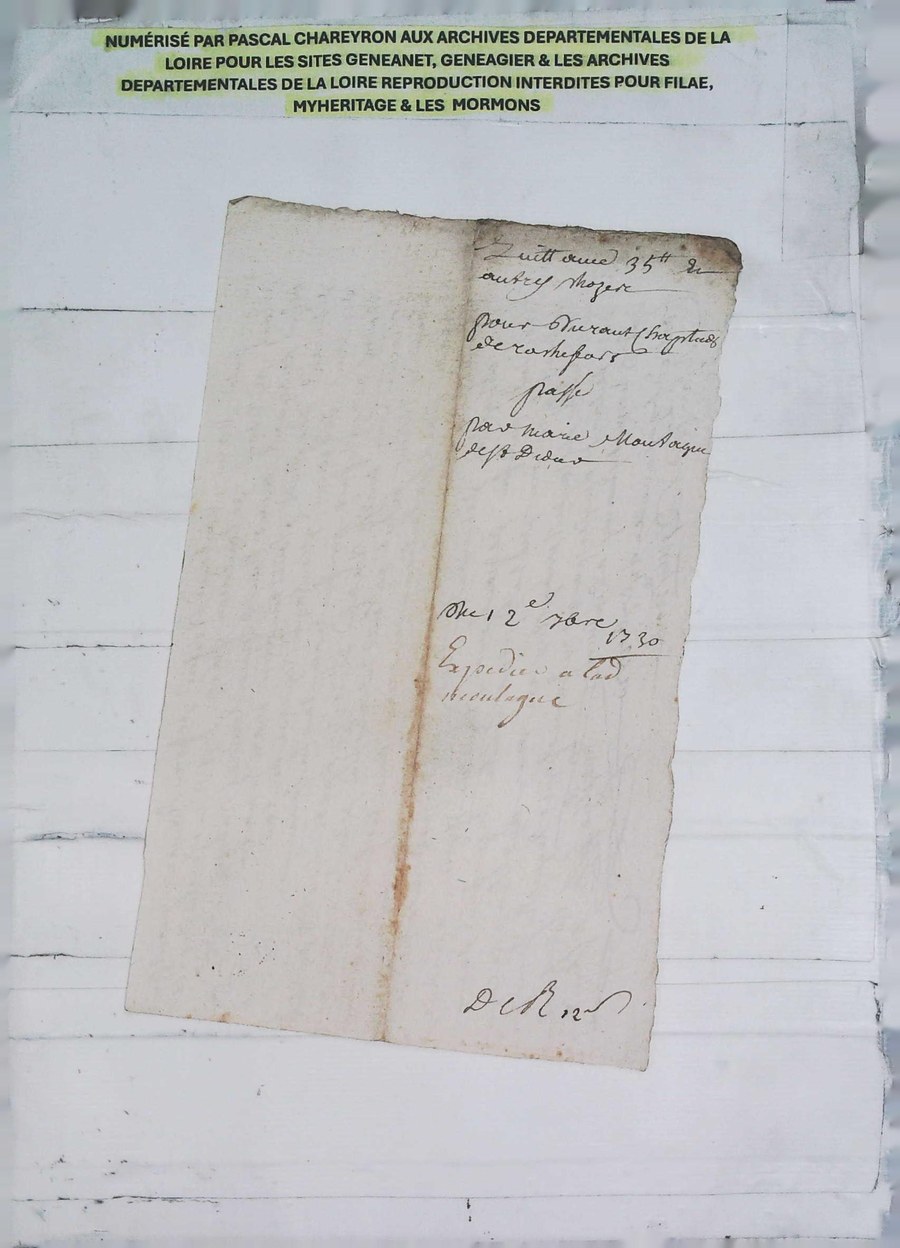 NUMÉRISÉ PAR PASCAL CHAREYRON AUX ARCHIVES DEPARTEMENTALES DE LA
LOIRE POUR LES SITES GENEANET, GENEAGIER & LES ARCHIVES
DEPARTEMENTALES DE LA LOIRE REPRODUCTION INTERDITES POUR FILAE,
MYHERITAGE & LES MORMONS
Quittance 35tt &
autres choses
pour Durant
de rochefort
passé
par marie Montagne
de st Didier
Du 12e 7bre
1730
Expedier a lad
montagne